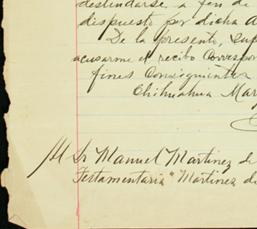 deslindarse a fin de
dispuesto por dicha A
De la presente, sup
acusarme el recibo correspon
fines consiguientes
Chihuahua Mar
Al Sr Manuel Martinez de
Testamentaria "Martinez de